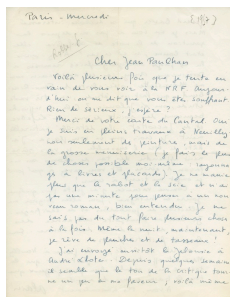 Paris - mercredi
Cher Jean Paulhan
Voilà plusieurs fois que je tente en
vain de vous voir à la NRF. Aujour-
d'hui on me dit que vous êtes souffrant
Rien de sérieux, j'espère ?
Merci de votre carte du Cantal. Oui
je suis en pleins travaux à Neuilly
non seulement de peinture, mais de
la grosse menuiserie : je fais le plus
de choses possible moi-même (rayons
à livres et placards). Je ne manie
plus que le rabot et la scie et n'ai
pas une minute pour penser à mon nou-
veau roman, bien entendu. Je ne
sais pas du tout faire plusieurs choses
à la fois. Même la nuit, maintenant,
je rêve de planches et de tasseaux.
J'ai envoyé aussitôt le
André Lhote. Depuis quelques semaines
il semble que le ton de la critique tour-
ne un peu à ma faveur ; voilà même